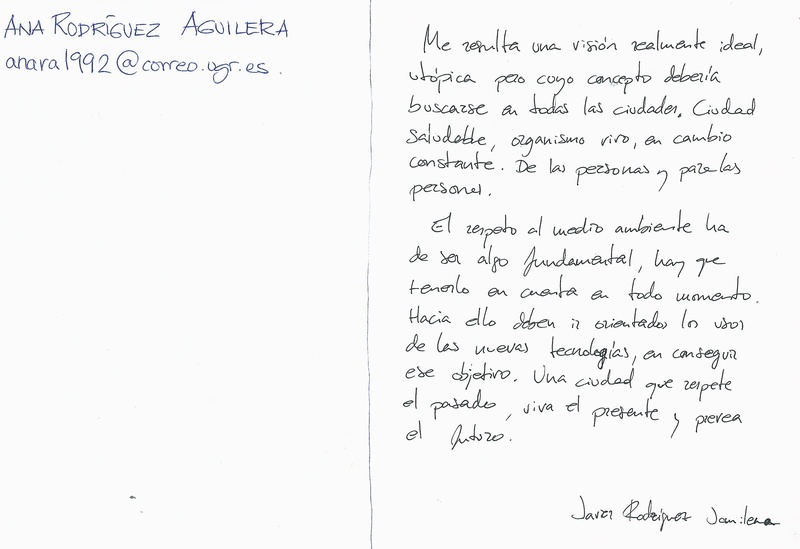 ANA RODRÍGUEZ AGUILERA
anara1992@correo.ugr.es.
Me resulta una visión realmente ideal,
utópica pero cuyo concepto debería
buscarse en todas las ciudades. Ciudad
saludable, organismo vivo, en cambio
constante. De las personas y para las
personas.
El respeto al medio ambiente ha
de ser algo fundamental, hay que
tenerlo en cuenta en todo momento.
Hacia ello deben ir orientados los usos
de las nuevas tecnologías, en conseguir
ese objetivo. Una ciudad que respete
el pasado, viva el presente y prevea
el futuro.
Javier Rodríguez Jamilena